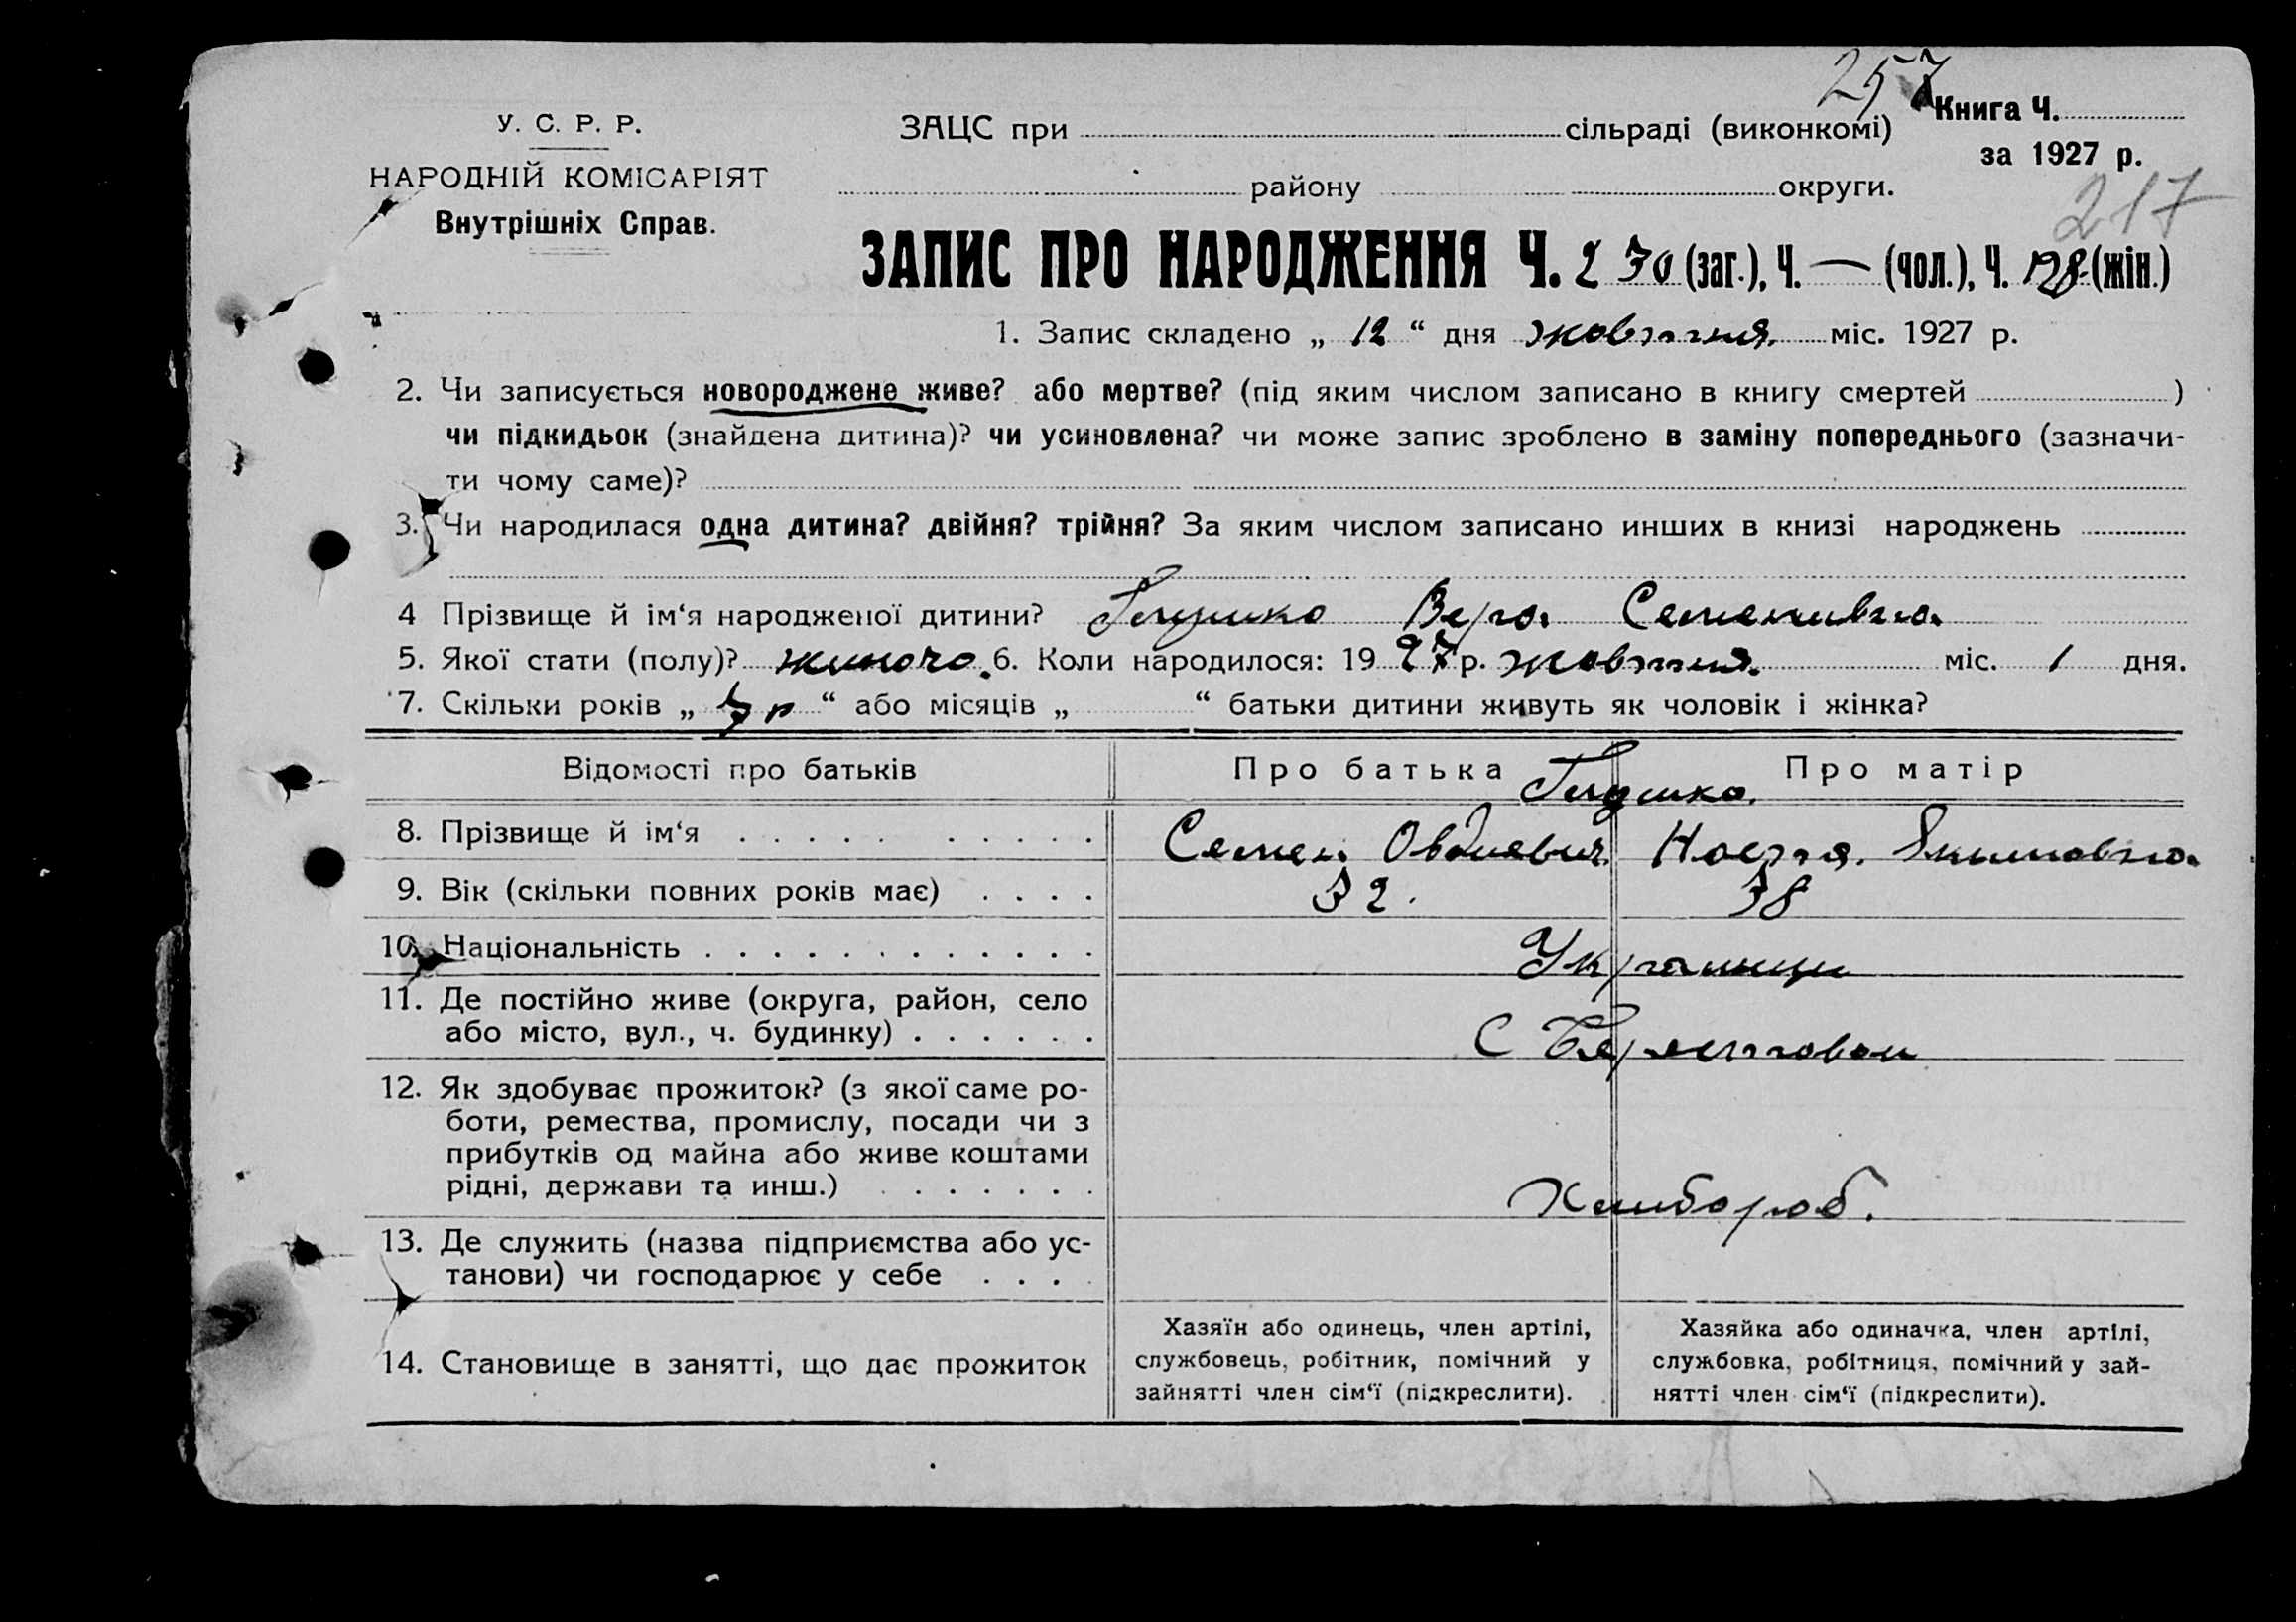 257
У. С. Р. Р.
НАРОДНІЙ КОМІСАРІЯТ
Внутрішніх Справ.
ЗАЦС при сільраді (виконкомі)
району округи.
Книга Ч.
за 1927 р.
217
ЗАПИС ПРО НАРОДЖЕННЯ Ч. 230 (заг.), Ч. — (чол.), Ч. 128 (жін.)
1. Запис складено „ 12 “ дня жовтня міс. 1927 р.
2. Чи записується новороджене живе? або мертве? (під яким числом записано в книгу смертей )
чи підкидьок (знайдена дитина)? чи усиновлена? чи може запис зроблено в заміну попереднього (зазначи-
ти чому саме)?
3. Чи народилася одна дитина? двійня? трійня? За яким числом записано инших в книзі народжень
4 Прізвище й ім‘я народженої дитини? Вера Семенивна
5. Якої стати (полу)? жиночо. 6. Коли народилося: 1927 р. жовтня міс. 1 дня.
7. Скільки років „ “ або місяців „ “ батьки дитини живуть як чоловік і жінка?
Відомості про батьків Про батька Про матір
8. Прізвище й ім‘я Семен Овдиевич Настя Якимовна
9. Вік (скільки повних років має) 32. 38
10. Національність Украинци
11. Де постійно живе (округа, район, село
або місто, вул., ч. будинку) С Берестовои
12. Як здобуває прожиток? (з якої саме ро-
боти, ремества, промислу, посади чи з
прибутків од майна або живе коштами
рідні, держави та инш.) Хлибороб.
13. Де служить (назва підприємства або ус-
танови) чи господарює у себе
14. Становище в занятті, що дає прожиток
Хазяїн або одинець, член артілі,
службовець, робітник, помічний у
зайнятті член сім‘ї (підкреслити).
Хазяйка або одиначка, член артілі,
службовка, робітниця, помічний у зай-
нятті член сім‘ї (підкреслити).